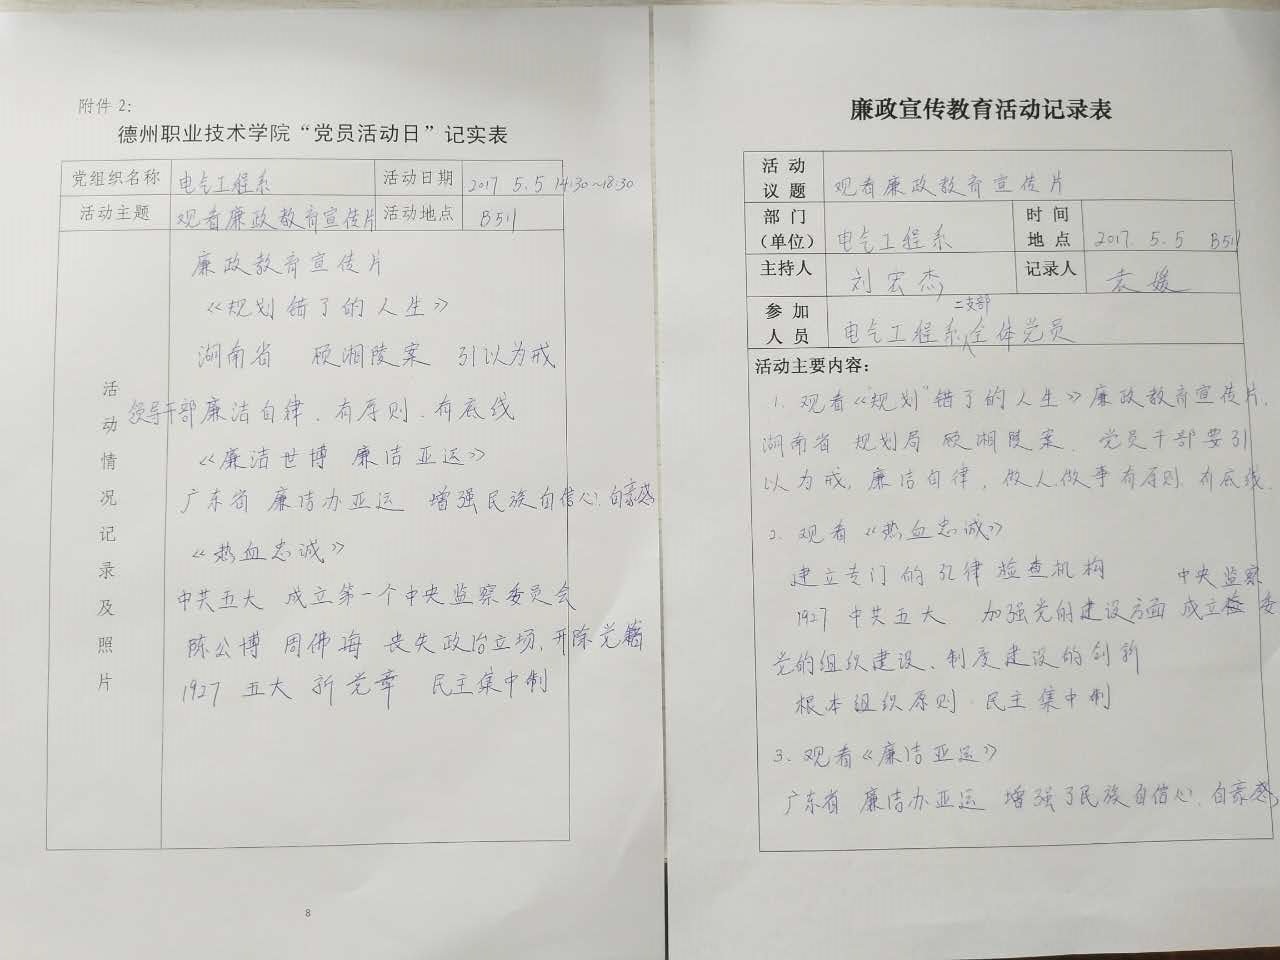 附件 2:
德州职业技术学院“党员活动日”记实表
党组织名称 电气工程系 活动日期 2017 5.5 14:30~18:30
活动主题 观看廉政教育宣传片 活动地点 B511
活动情况记录及照片
廉政教育宣传片
《规划错了的人生》
湖南省 顾湘陵案 引以为戒
领导干部廉洁自律、有原则、有底线
《廉洁世博 廉洁亚运》
广东省 廉洁办亚运 增强民族自信心、自豪感
《热血忠诚》
中共五大 成立第一个中央监察委员会
陈公博 周佛海 丧失政治立场,开除党籍
1927 五大 新党章 民主集中制
8
廉政宣传教育活动记录表
活动议题 观看廉政教育宣传片
部门(单位) 电气工程系 时间地点 2017. 5.5 B511
主持人 刘宏杰 记录人 袁媛
参加人员 电气工程系二支部全体党员
活动主要内容:
1、观看《“规划”错了的人生》廉政教育宣传片,
湖南省 规划局 顾湘陵案、党员干部要引
以为戒,廉洁自律,做人做事有原则、有底线.
2、观看《热血忠诚》
建立专门的纪律检查机构 中央监察
1927 中共五大 加强党的建设方面 成立 委
党的组织建设、制度建设的创新
根本组织原则、民主集中制
3、观看《廉洁亚运》
广东省 廉洁办亚运 增强了民族自信心、自豪感,